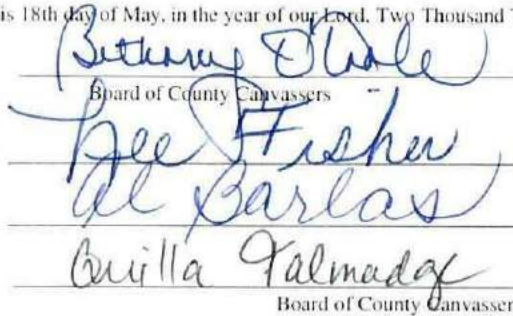 is 18th day of May, in the year of our Lord, Two Thousand
Bethany O'Toole
Board of County Canvassers
Lee Fisher
Al Barlas
Quilla Talmadge
Board of County Canvasser